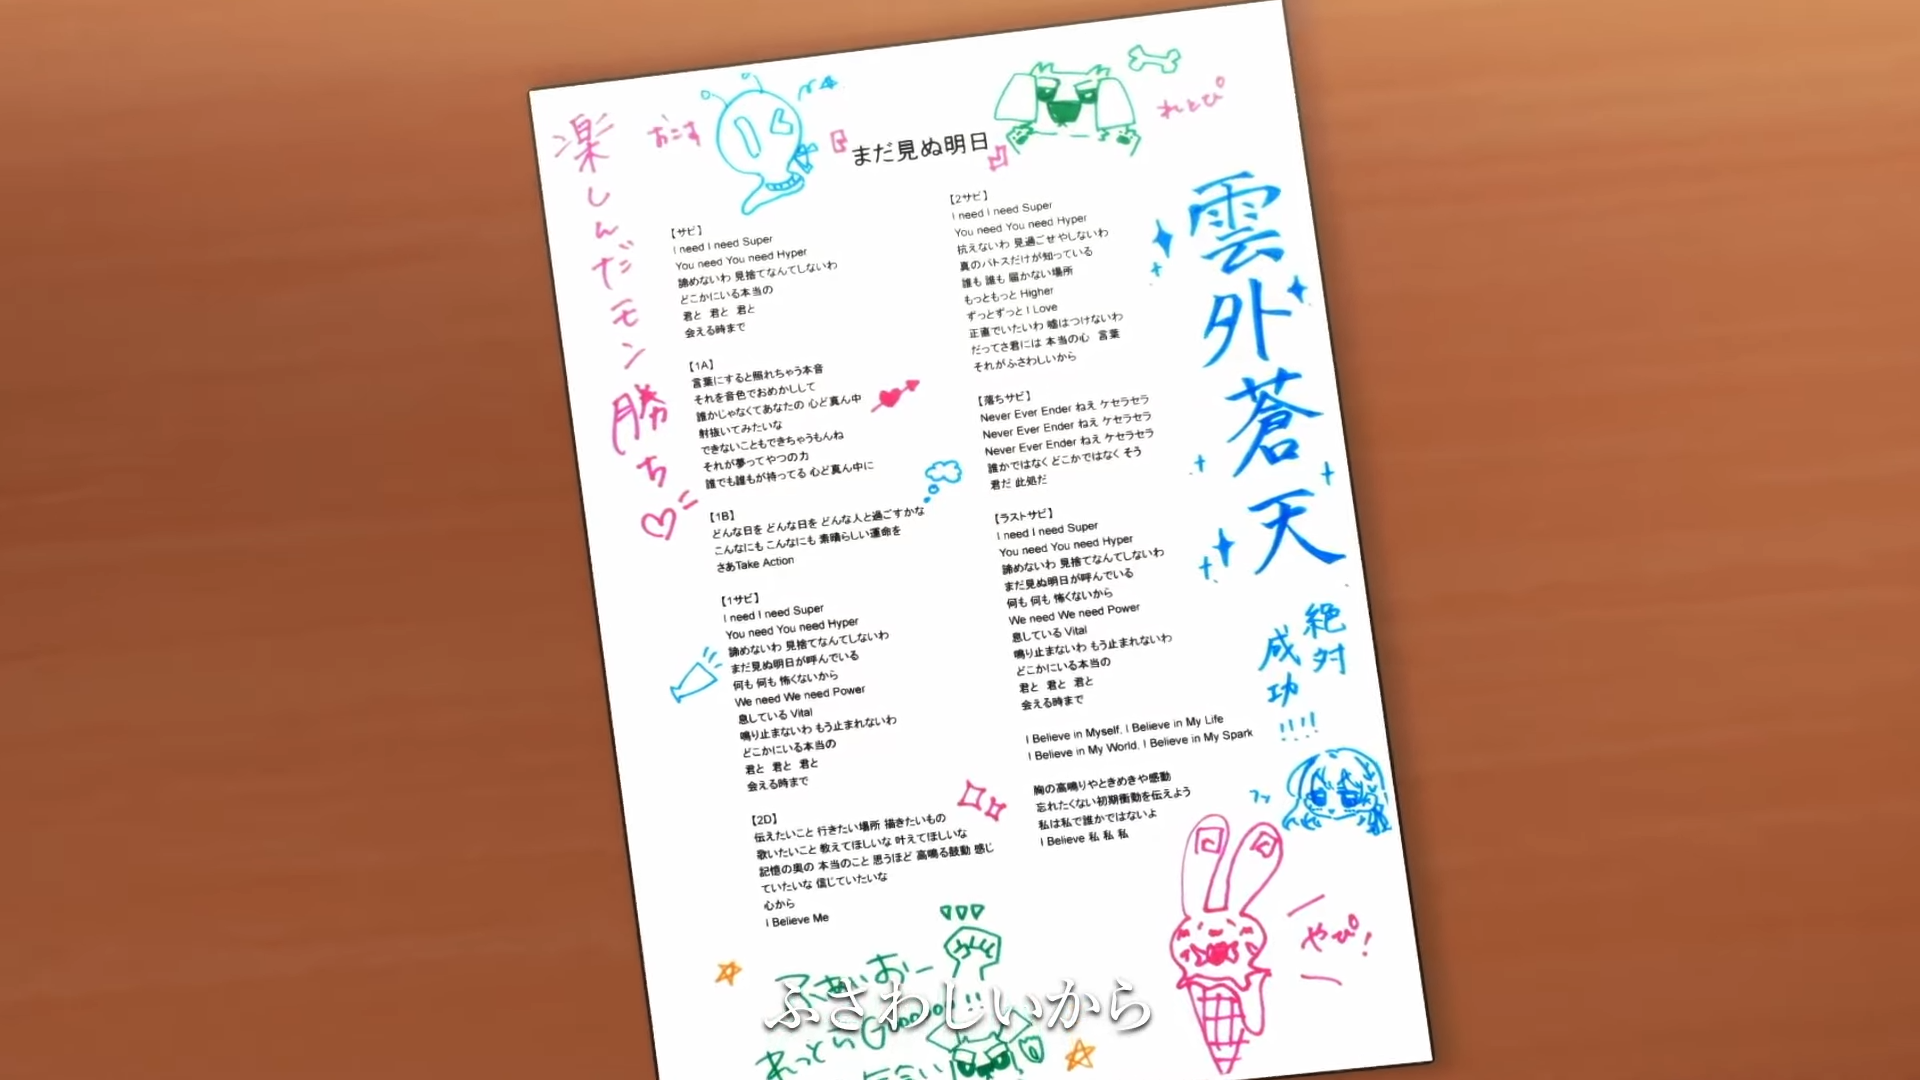 まだ見ぬ明日
おこす
れとぴ
楽しんだモン勝ち
【サビ】
I need I need Super
You need You need Hyper
諦めないわ 見捨てなんてしないわ
どこかにいる本当の
君と 君と 君と
会える時まで
【1A】
言葉にすると照れちゃう本音
それを音色でおめかしして
誰かじゃなくてあなたの 心ど真ん中
射抜いてみたいな
できないこともできちゃうもんね
それが夢ってやつの力
誰でも誰もが持ってる 心ど真ん中に
【1B】
どんな日を どんな日を どんな人と過ごすかな
こんなにも こんなにも 素晴らしい運命を
さあTake Action
【1サビ】
I need I need Super
You need You need Hyper
諦めないわ 見捨てなんてしないわ
まだ見ぬ明日が呼んでいる
何も 何も 怖くないから
We need We need Power
息している Vital
鳴り止まないわ もう止まれないわ
どこかにいる本当の
君と 君と 君と
会える時まで
【2D】
伝えたいこと 行きたい場所 描きたいもの
歌いたいこと 教えてほしいな 叶えてほしいな
記憶の奥の 本当のこと 思うほど 高鳴る鼓動 感じ
ていたいな 信じていたいな
心から
I Believe Me
【2サビ】
I need I need Super
You need You need Hyper
抗えないわ 見過ごせやしないわ
真のパトスだけが知っている
誰も 誰も 届かない場所
もっともっと Higher
ずっとずっと I Love
正直でいたいわ 嘘はつけないわ
だってさ君には 本当の心 言葉
それがふさわしいから
【落ちサビ】
Never Ever Ender ねえ ケセラセラ
Never Ever Ender ねえ ケセラセラ
Never Ever Ender ねえ ケセラセラ
誰かではなく どこかではなく そう
君だ 此処だ
【ラストサビ】
I need I need Super
You need You need Hyper
諦めないわ 見捨てなんてしないわ
まだ見ぬ明日が呼んでいる
何も 何も 怖くないから
We need We need Power
息している Vital
鳴り止まないわ もう止まれないわ
どこかにいる本当の
君と 君と 君と
会える時まで
I Believe in Myself. I Believe in My Life
I Believe in My World. I Believe in My Spark
胸の高鳴りやときめきや感動
忘れたくない初期衝動を伝えよう
私は私で誰かではないよ
I Believe 私 私 私
雲外蒼天
絶対
成功!!!!
フッ
やぴ!
ふぁいおー
ふさわしいから